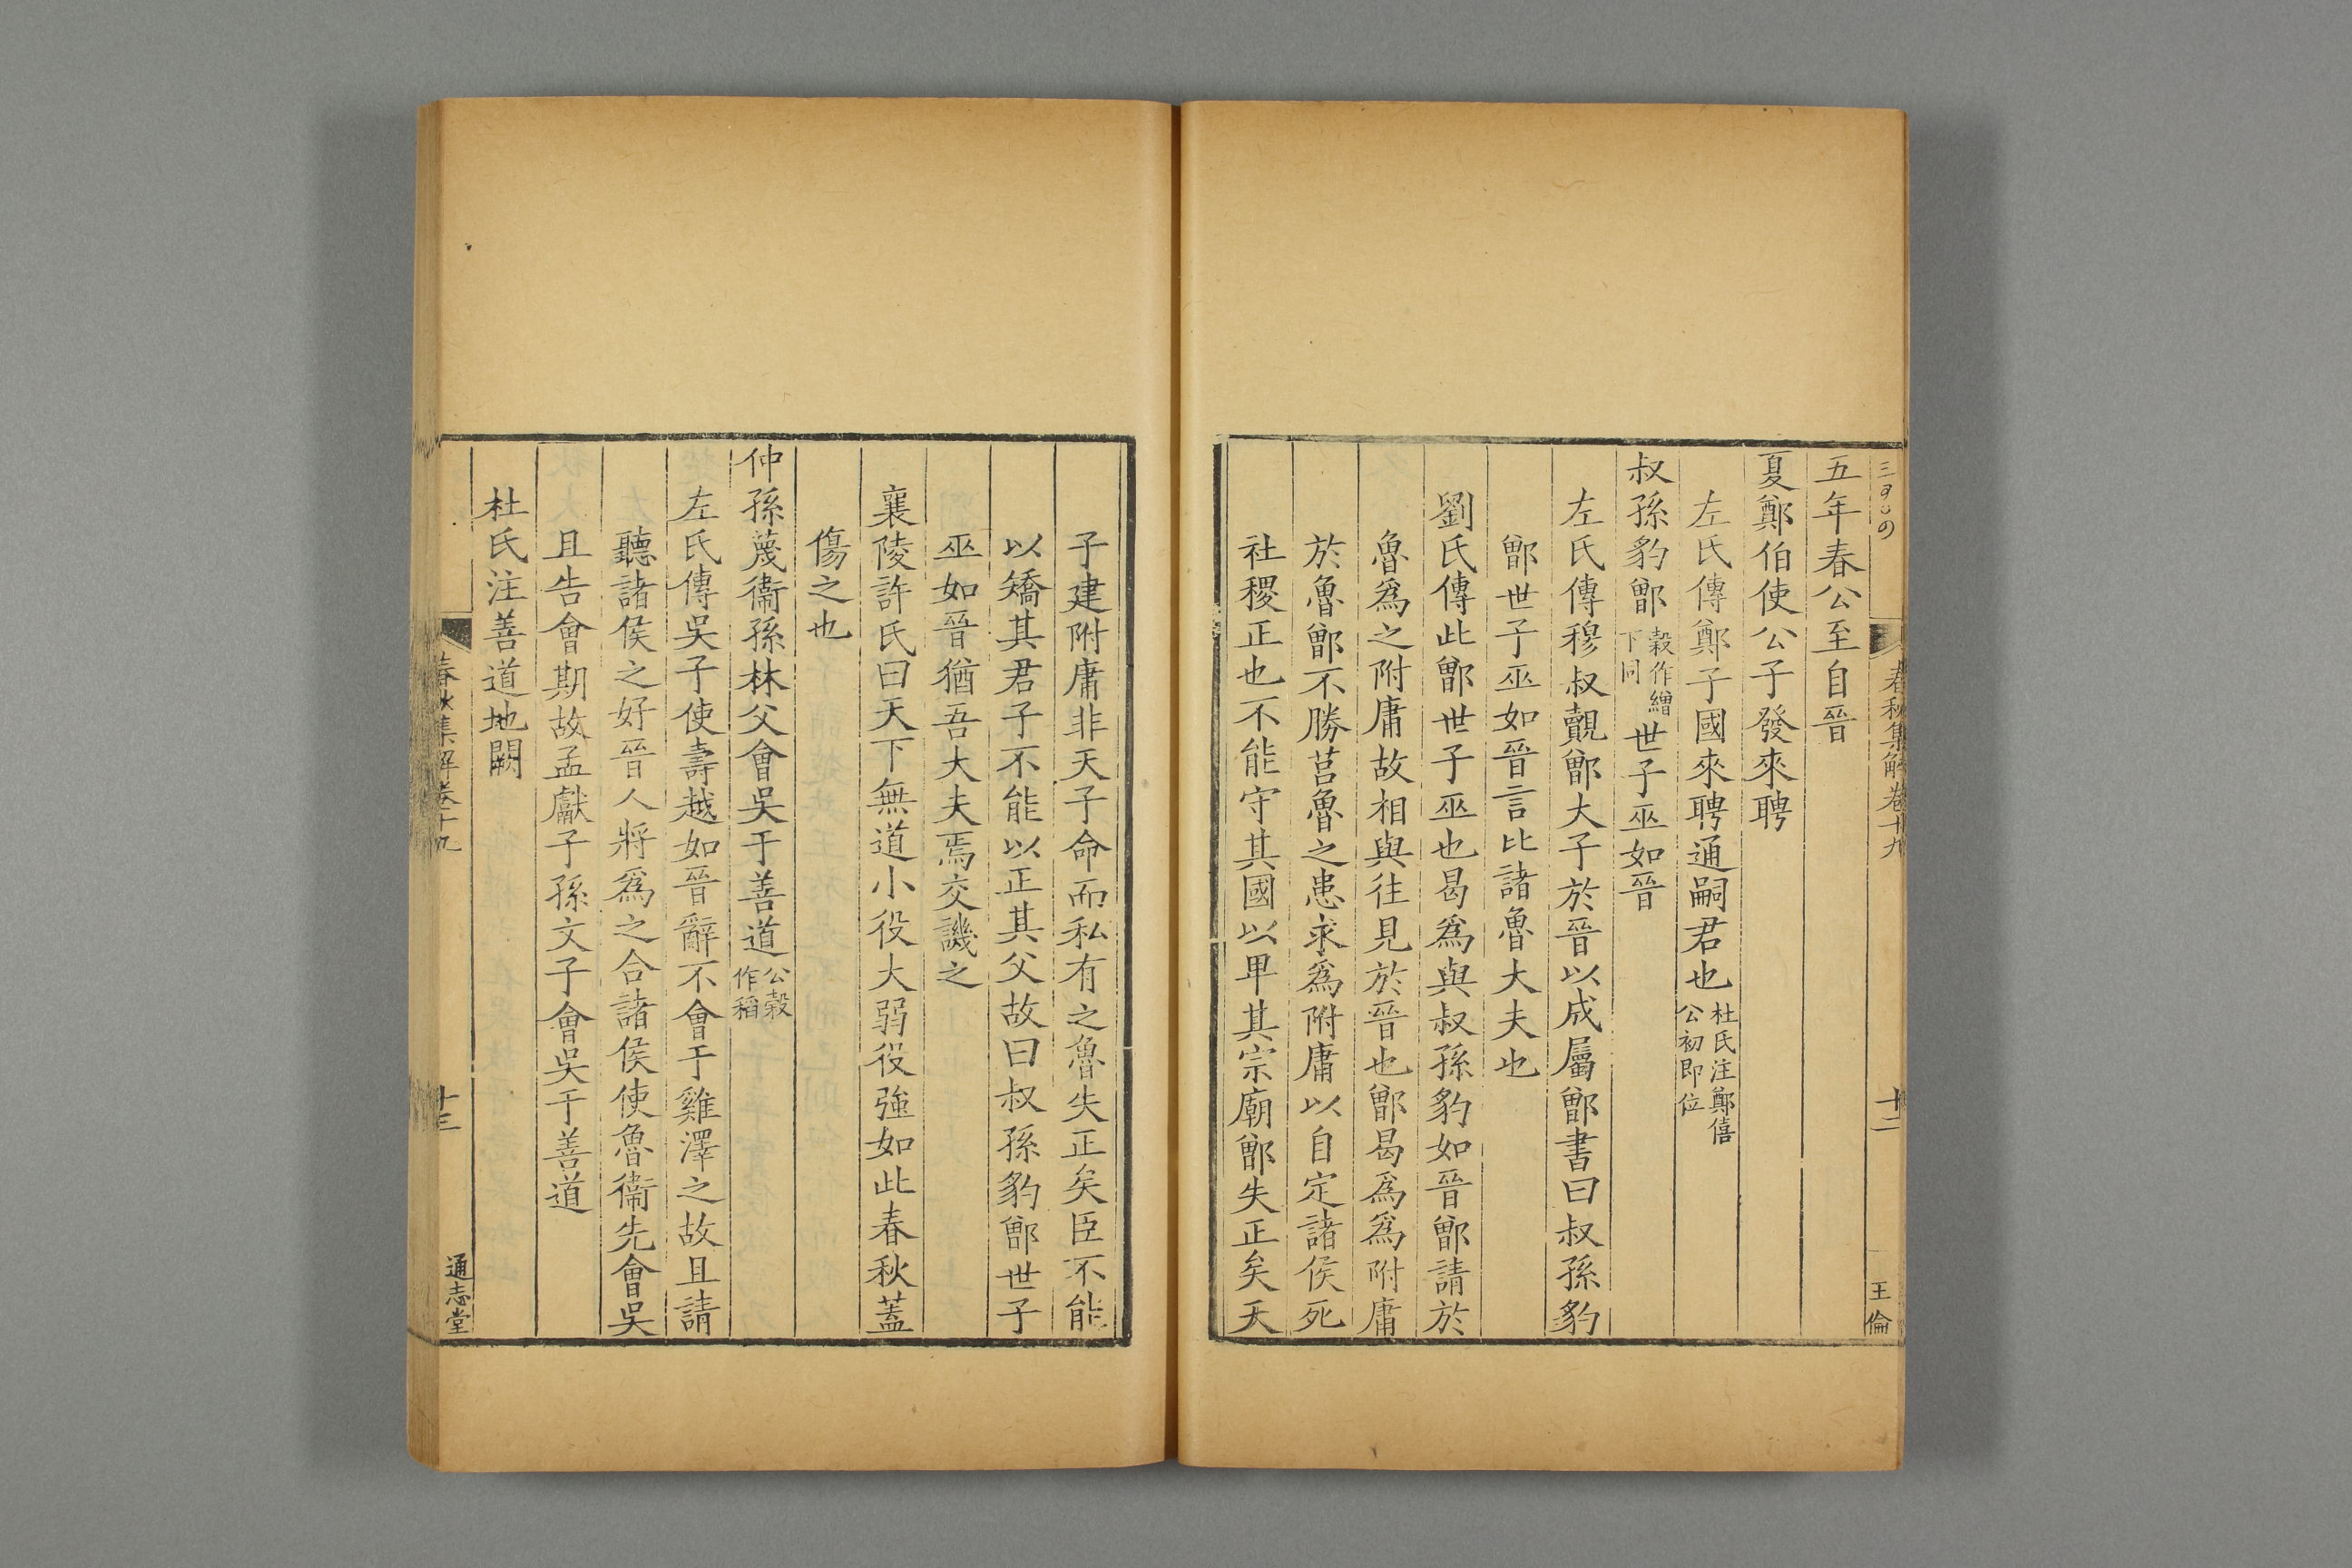 春秋集解卷十九
十二
王倫
五年春公至自晉
夏鄭伯使公子發來聘
左氏傳鄭子國來聘通嗣君也杜氏注鄭僖公初即位
叔孫豹鄫穀作繒下同世子巫如晉
左氏傳穆叔覿鄫大子於晉以成屬鄫書曰叔孫豹
鄫世子巫如晉言比諸魯大夫也
劉氏傳此鄫世子巫也曷爲與叔孫豹如晉鄫請於
魯爲之附庸故相與往見於晉也鄫曷爲爲附庸
於魯鄫不勝莒魯之患求爲附庸以自定諸侯死
社稷正也不能守其國以卑其宗廟鄫失正矣天
子建附庸非天子命而私有之魯失正矣臣不能
以矯其君子不能以正其父故曰叔孫豹鄫世子
巫如晉猶吾大夫焉交譏之
襄陵許氏曰天下無道小役大弱役強如此春秋蓋
傷之也
仲孫蔑衞孫林父會吳于善道公穀作稻
左氏傳吳子使壽越如晉辭不會于雞澤之故且請
聽諸侯之好晉人將爲之合諸侯使魯衞先會吳
且告會期故孟獻子孫文子會吳于善道
杜氏注善道地闕
春秋集解卷十九
十三
通志堂